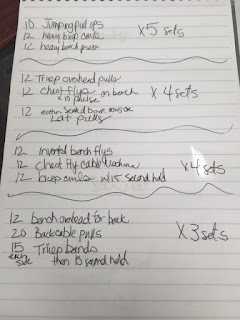 10 Jumping pull ups
12 heavy bicep curls
12 heavy bench press
X 5 sets
12 Tricep overhead pulls
12 Chest flys on bench
x 10 pulse
12 Seated row
Lat pulls
X 4 sets
12 Inverted bench flys
12 Chest fly cable machine
12 bicep curls w/15 second hold
X 4 sets
12 bench overhead for back
20 Back cable pulls
15 Tricep bands
each side then 15 second hold
X 3 sets